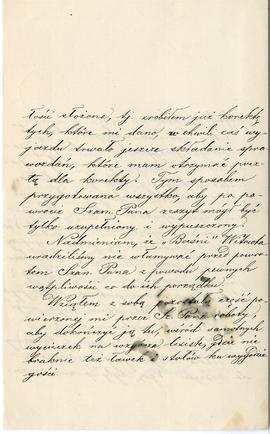 łości złożone, tj. zrobiłem już korektę
tych, które mi dano, w chwili zaś wy-
jazdu trwało jeszcze składanie spra-
wozdań, które mam otrzymać pocz-
tą dla korekty. Tym sposobem
przygotowano wszystko, aby po po-
wrocie Szan. Pana zeszyt mógł być
tylko uzupełniony i wypuszczony.
Nadmieniam, że „Baśni” Witorta
uradziliśmy nie włamywać przed powro-
tem Szan. Pana z powodu pewnych
wątpliwości co do ich porządku.
Wziąłem z sobą pozostałą część po-
wierzonej mi przez Sz. Pana roboty,
aby dokończyć ją tu, wśród samotnych
wycieczek na wzgórza leśne, gdzie nie
braknie też ławek i stołów ku wygodzie
gości.